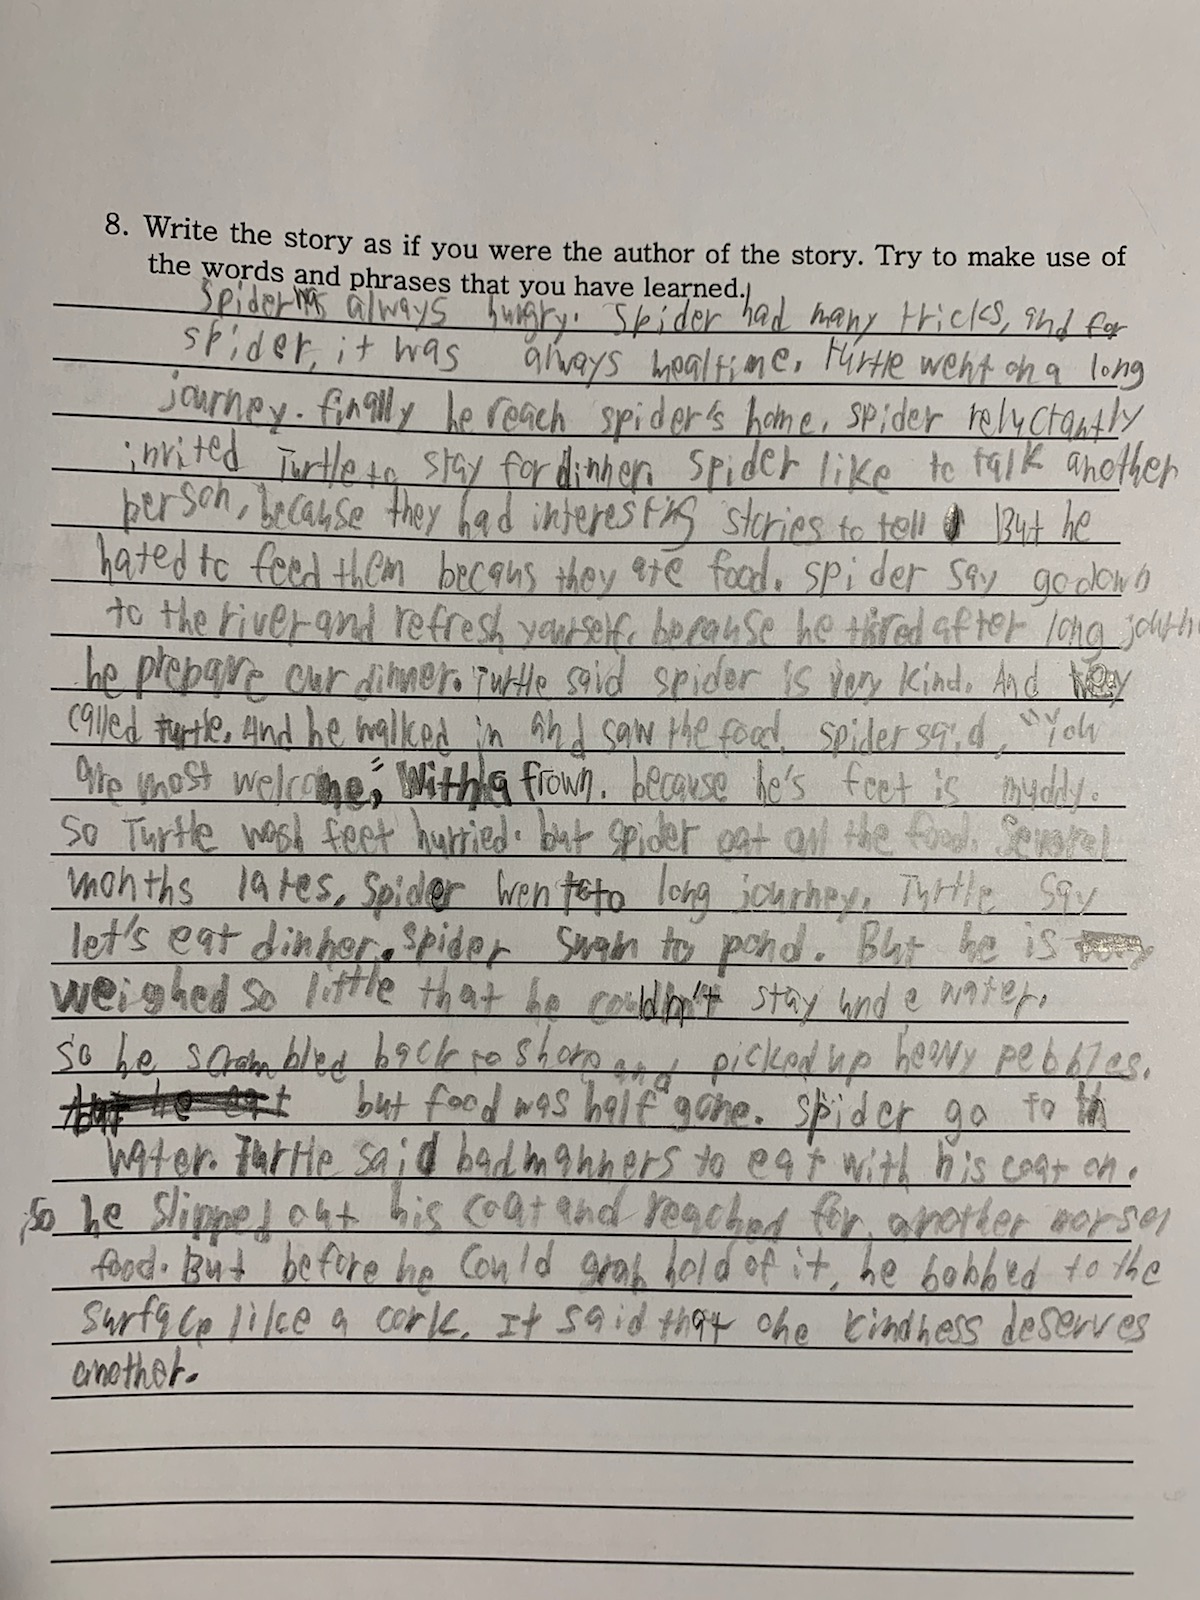 8. Write the story as if you were the author of the story. Try to make use of
the words and phrases that you have learned.
Spider was always hungry. Spider had many tricks, and for
spider, it was always mealtime. Turtle went on a long
journey. finally he reach spider's home, spider reluctantly
invited Turtle to stay for dinner. Spider like to talk another
person, because they had interesting stories to tell But he
hated to feed them becaus they ate food. spider say go down
to the river and refresh yourself. because he tired after long
he prepare our dinner. Turtle said spider is very kind. And
called turtle. And he walked in and saw the food. spider said, "You
are most welcome," With a frown. because he's feet is muddy.
so Turtle wash feet hurried. but spider eat all the food. Several
months lates, Spider went to long journey. Turtle say
let's eat dinner. spider swam to pond. But he is
weighed so little that he couldn't stay unde water.
so he scrambled back to shore and picked up heavy pebbles.
but food was half gone. spider go to
water. Turtle said bad manners to eat with his coat on.
so he slipped out his coat and reached for another morsel
food. But before he could grab hold of it, he bobbed to the
surface like a cork. It said that one kindness deserves
another.